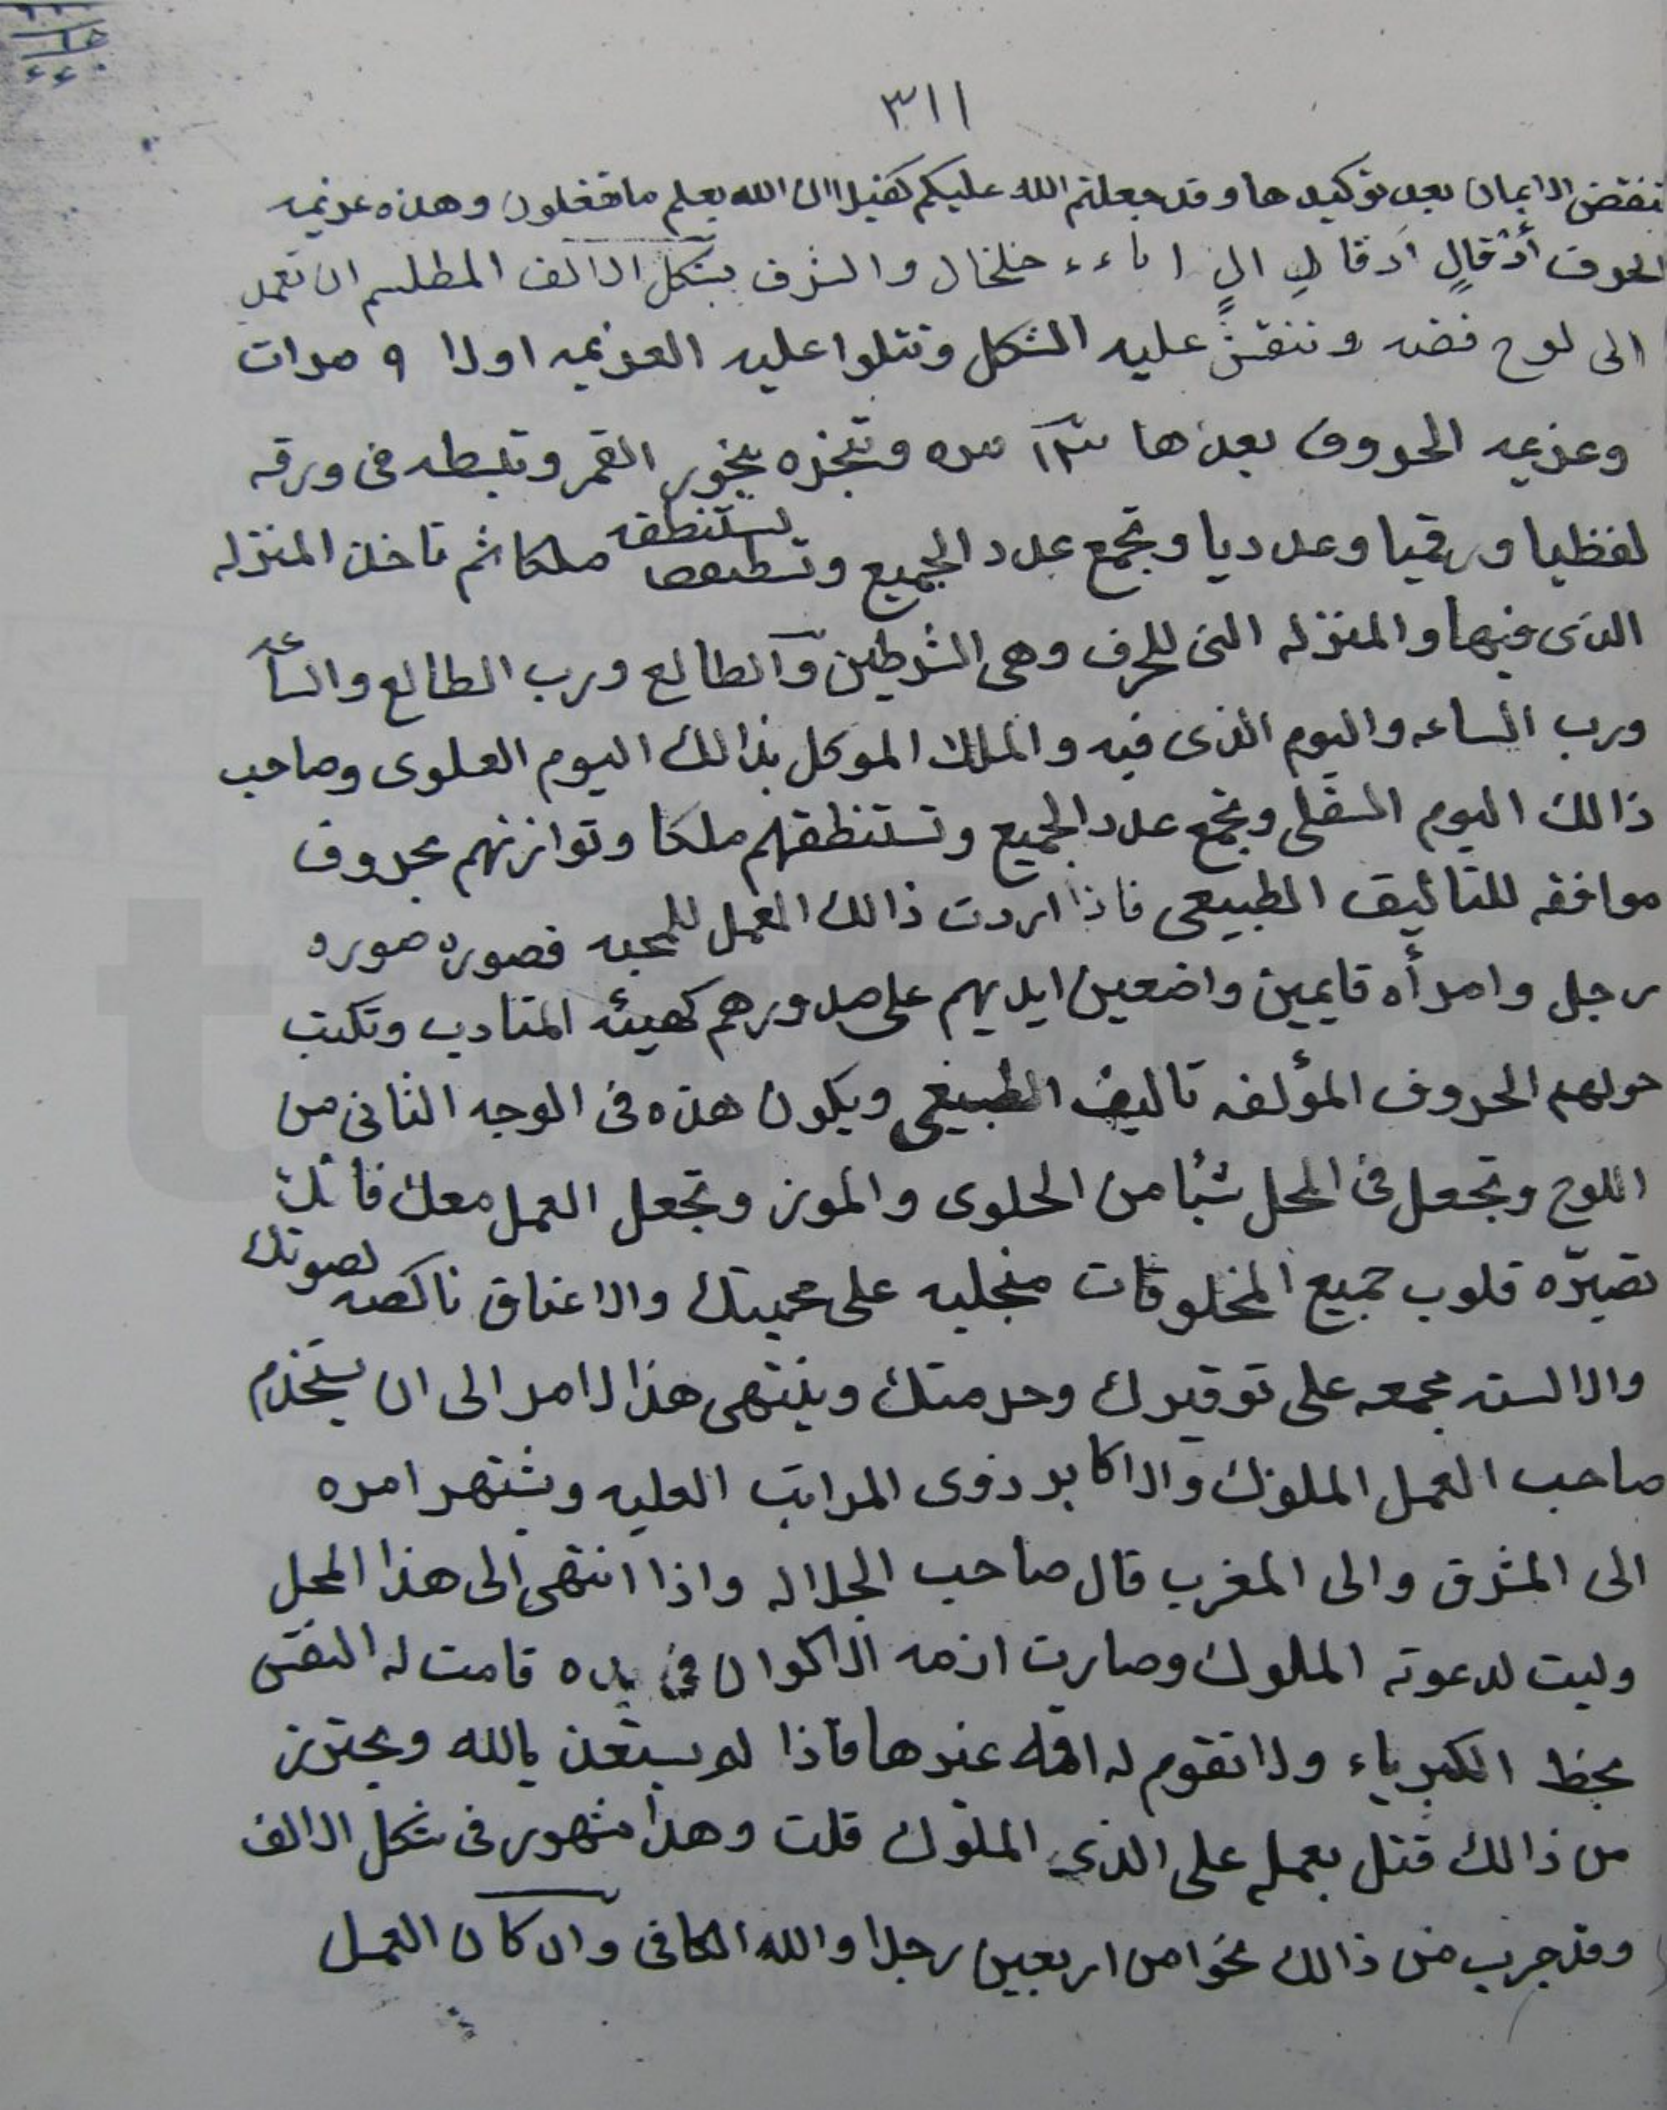 ٣١١
تنقض الايمان بعد توكيدها وقد جعلتم الله عليكم كفيلا ان الله يعلم ما تفعلون وهذه عزيمه
الحروف خلخال والشرف بشكل الالف المطلسم ان تعمد
الى لوح فضه وتنقش عليه الشكل وتتلوا عليه العزيمه اولا ٩ مرات
وعزيمه الحروف بعدها مره وتبخره ببخور القمر وتبسطه فى ورقه
لفظيا ورقميا وعدديا وتجمع عدد الجميع تستنطقه ملكا ثم تاخذ المنزله
الذى فيها والمنزله التى للحرف وهى الشرطين والطالع ورب الطالع والساعه
ورب الساعه واليوم الذى فيه والملك الموكل بذالك اليوم العلوى وصاحب
ذالك اليوم السفلى وتجمع عدد الجميع وتستنطقهم ملكا وتوازنهم بحروف
موافقه للتاليف الطبيعى فاذا اردت ذالك العمل للمحبه فصوره صوره
رجل وامرأه قايمين واضعين ايديهم على صدورهم كهيئه المتادب وتكتب
حولهم الحروف المؤلفه تاليف الطبيعى ويكون هذه فى الوجه الثانى من
اللوح وتجعل فى المحل شيا من الحلوى والموز وتجعل العمل معك فانك
تصيره قلوب جميع المخلوقات منجليه على محبيتك والاعناق ناكصه لصوتك
والالسنه مجمعه على توقيرك وحرمتك وينتهى هذا الامر الى ان يستخدم
صاحب العمل الملوك والاكابر ذوى المراتب العليه ويشتهر امره
الى المشرق والى المغرب قال صاحب الجلاله واذا انتهى الى هذا المحل
ولبت لدعوته الملوك وصارت ازمه الاكوان فى يده قامت له النفس
بحظ الكبرياء ولا تقوم له عندها فاذا لم يستعذ بالله ويحترز
من ذالك قتل بعمله على الذى الملوك قلت وهذا مشهور فى شكل الالف
وقد جرب من ذالك نحوا من اربعين رجلا والله الكافى وان كان العمل